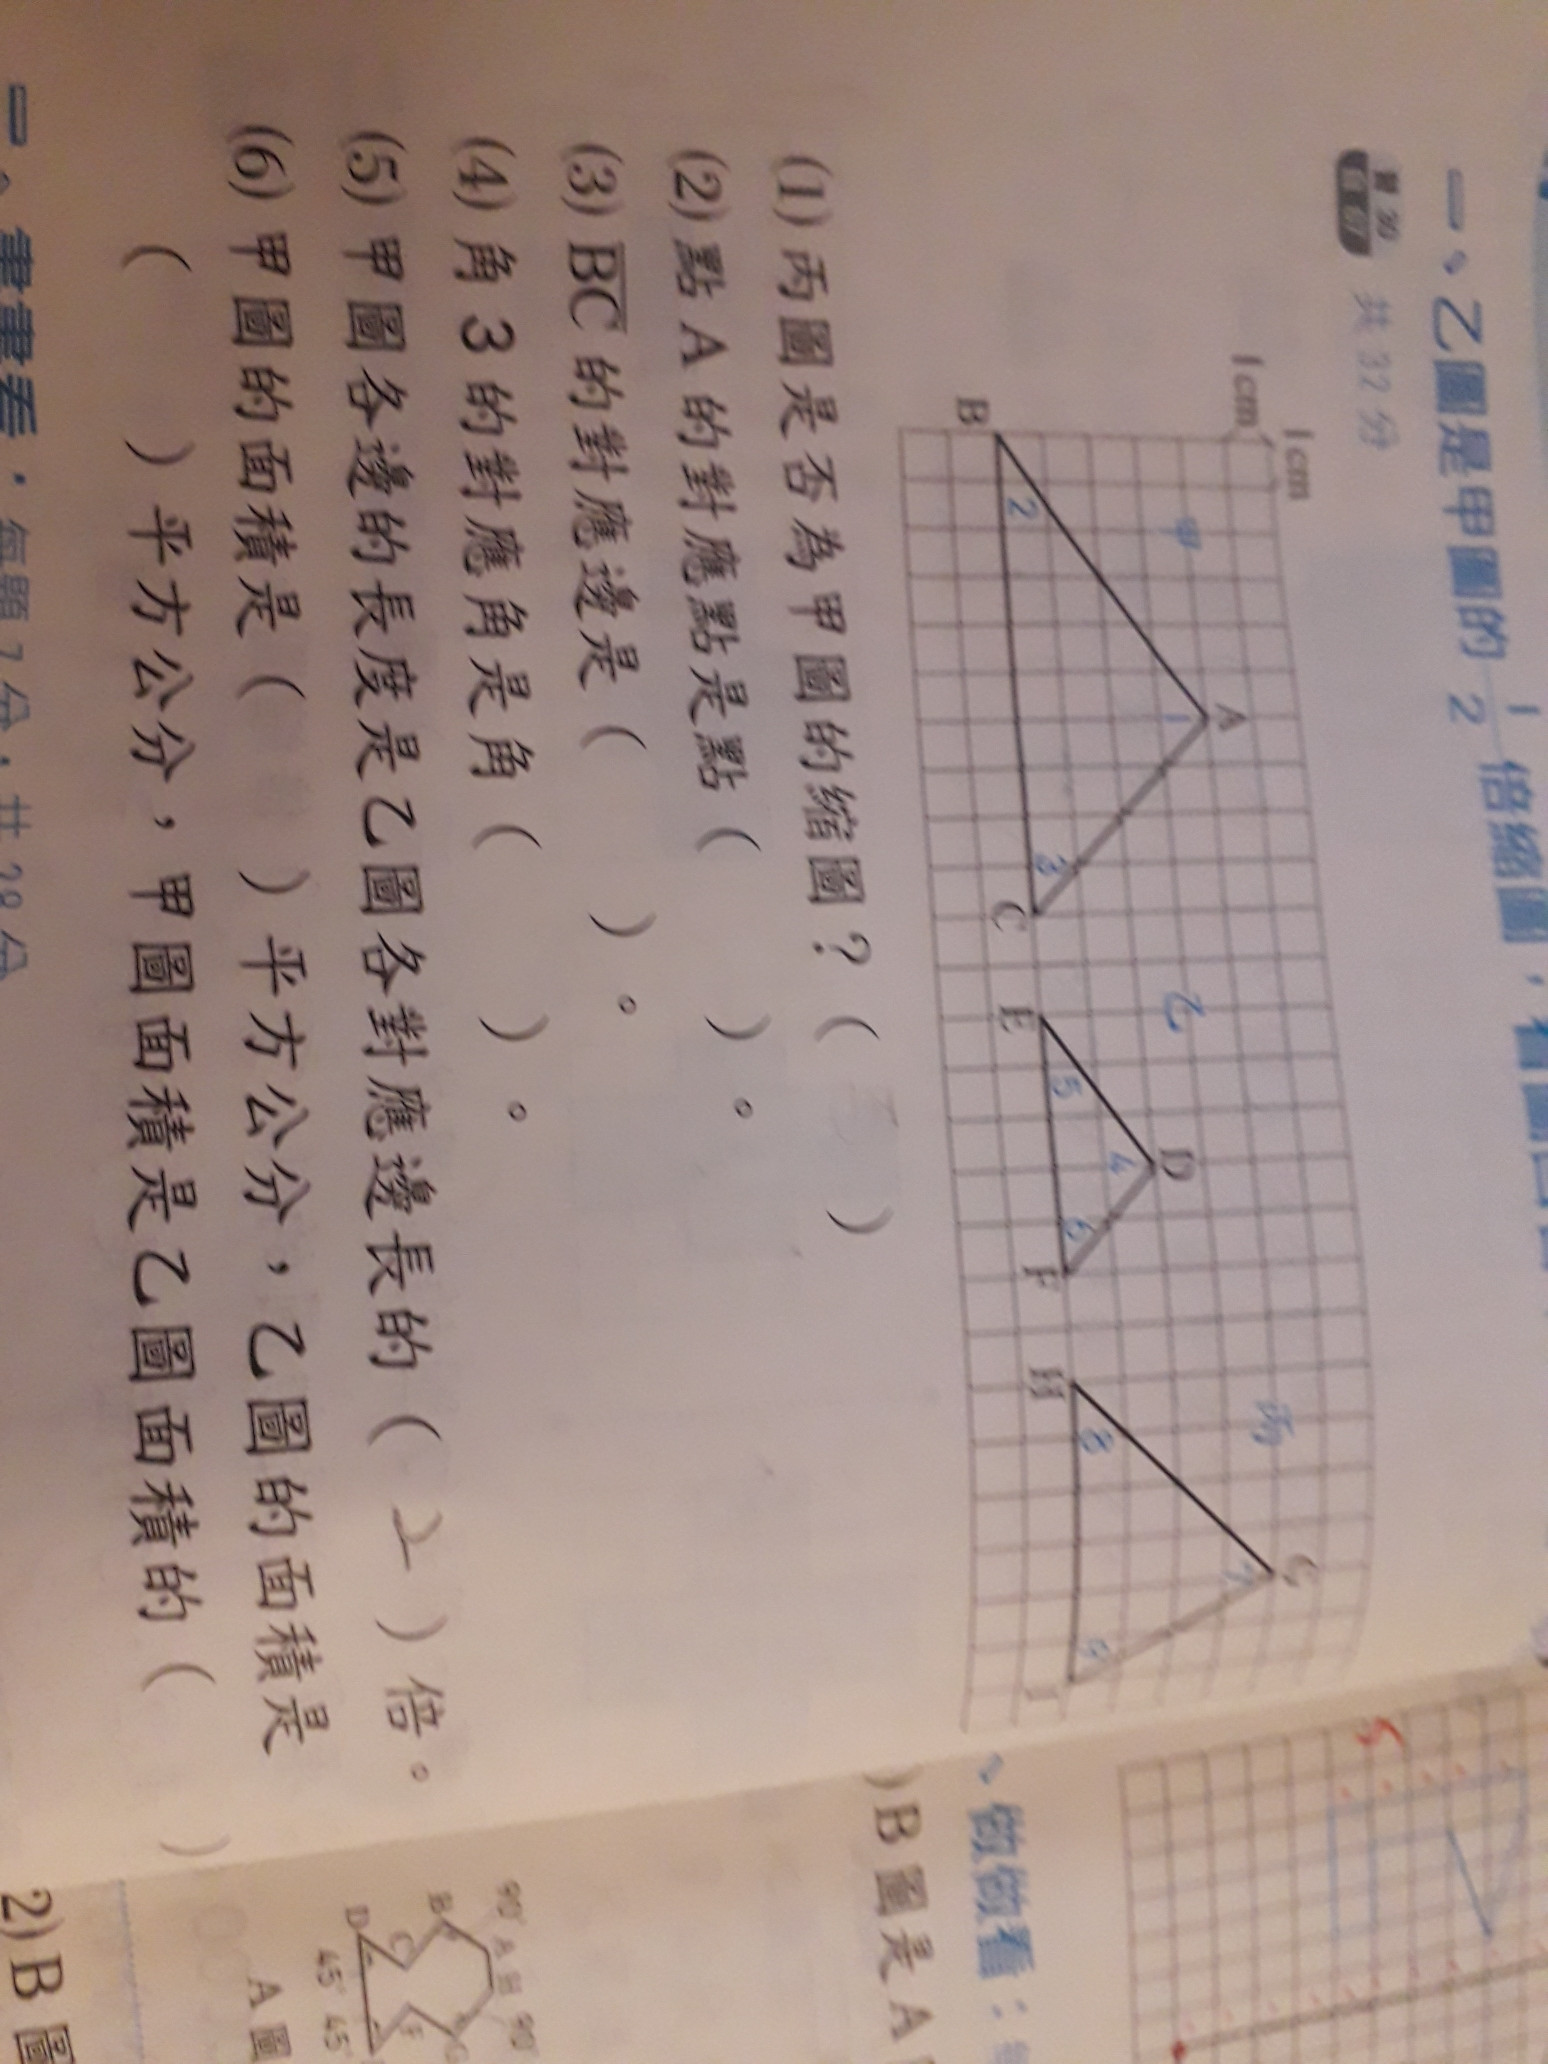 一、乙圖是甲圖的 1/2 倍縮圖，看圖回
共 32 分
1 cm
1 cm
甲
乙
丙
A
1
B
2
3
C
D
4
E
5
6
F
G
7
H
8
9
I
(1) 丙圖是否為甲圖的縮圖？（ ）
(2) 點 A 的對應點是點（ ）。
(3) B̅C̅ 的對應邊是（ ）。
(4) 角 3 的對應角是角（ ）。
(5) 甲圖各邊的長度是乙圖各對應邊長的（ 2 ）倍。
(6) 甲圖的面積是（ ）平方公分，乙圖的面積是
（ ）平方公分，甲圖面積是乙圖面積的（ ）
一、畫畫看：每題 7 分，共 28 分
5
、做做看：
) B 圖是 A
90° A 90°
B
C
D
F
G
45° 45°
A 圖
2) B 圖